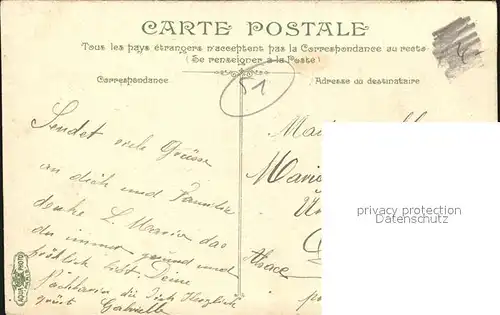 CARTE POSTALE
Tous les pays étrangers n'acceptent pas la Correspondance au recto
(Se renseigner à la Poste)
Correspondance
Adresse du destinataire
51
Sendet viele Grüsse
an dich und Familie
denke L. Maria das
du immer gesund und
fröhlich bist Deine
Nachbarin die Dich Herzlich
grüst Gabrielle
Marie
Alsace
privacy protection
www.oldthing.com
AQUA PHOTO